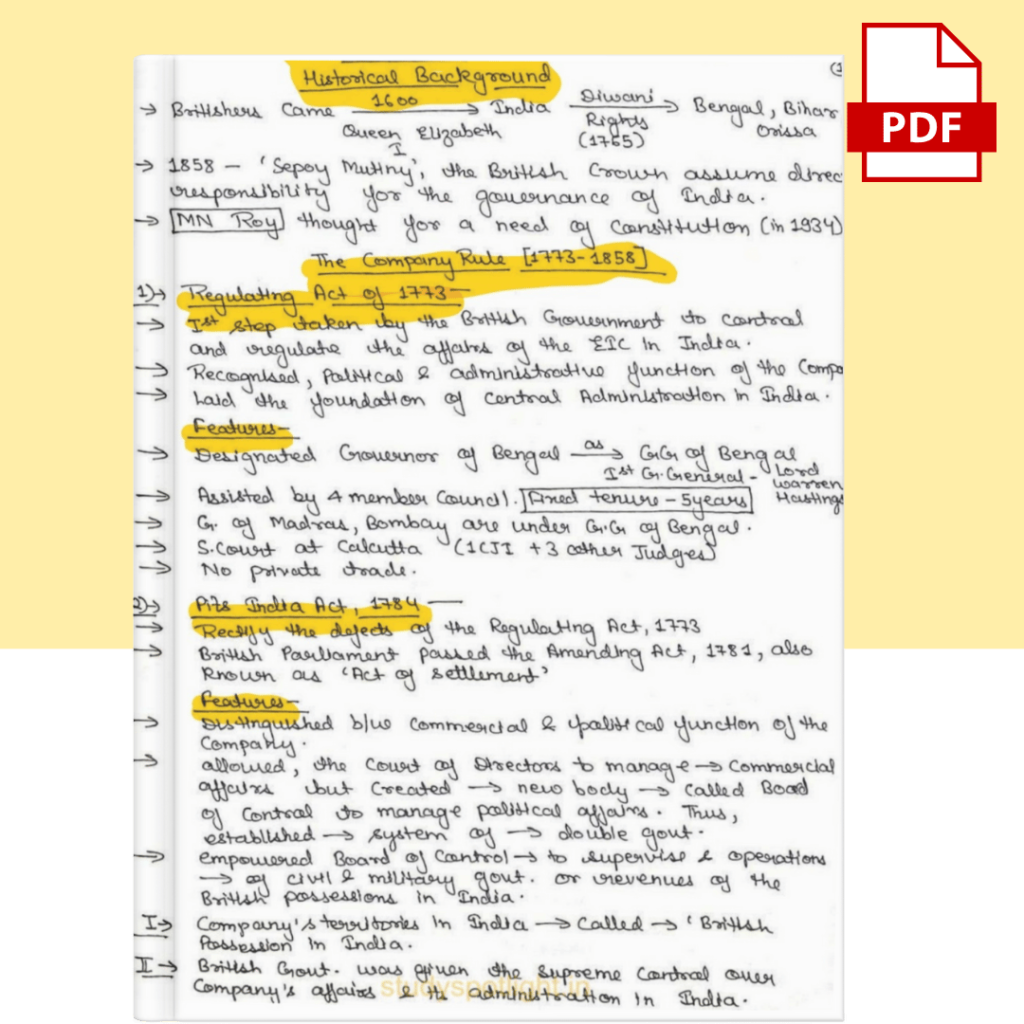 Historical Background
(1
→ Britishers Came 1600 → India Diwani → Bengal, Bihar
Queen Elizabeth I Rights (1765) Orissa
PDF
→ 1858 – 'Sepoy Mutiny', the British Crown assume direc
responsibility for the governance of India.
→ MN Roy thought for a need of constitution (in 1934)
The Company Rule [1773-1858]
1)→ Regulating Act of 1773 —
→ Ist step taken by the British Government to control
and regulate the affairs of the EIC in India.
→ Recognised, Political & administrative function of the Compa
→ Laid the foundation of central Administration in India.
Features-
→ Designated Governor of Bengal as → G.G of Bengal
Ist G. General - Lord Warren Hastings
→ Assisted by 4 member Council. Fixed tenure - 5years
→ G. of Madras, Bombay are under G.G of Bengal.
→ S.Court at Calcutta (1CJI + 3 other Judges)
→ No private trade.
2)→ Pits India Act, 1784 —
→ Rectify the defects of the Regulating Act, 1773
→ British Parliament passed the Amending Act, 1781, also
known as 'Act of settlement'
Features-
→ Distinguished b/w commercial & political function of the
Company.
→ allowed, the Court of Directors to manage → Commercial
affairs but created → new body → called Board
of Control to manage political affairs. Thus,
established → system of → double govt.
→ empowered Board of Control → to supervise & operations
→ of civil & military govt. or revenues of the
British possessions in India.
I→ Company's territories in India → Called → 'British
Possession in India.
II→ British Govt. was given the supreme control over
Company's affairs & its administration in India.
studyspotlight.in